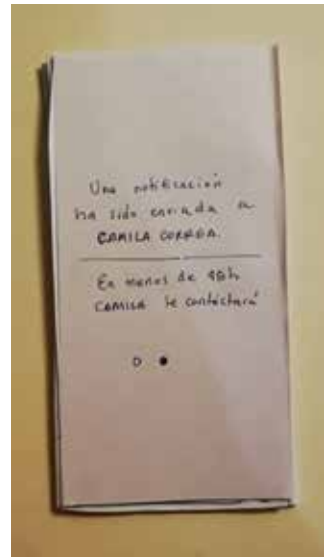 Una notificación
ha sido enviada a
CAMILA CORREA.
En menos de 48h
CAMILA te contactará